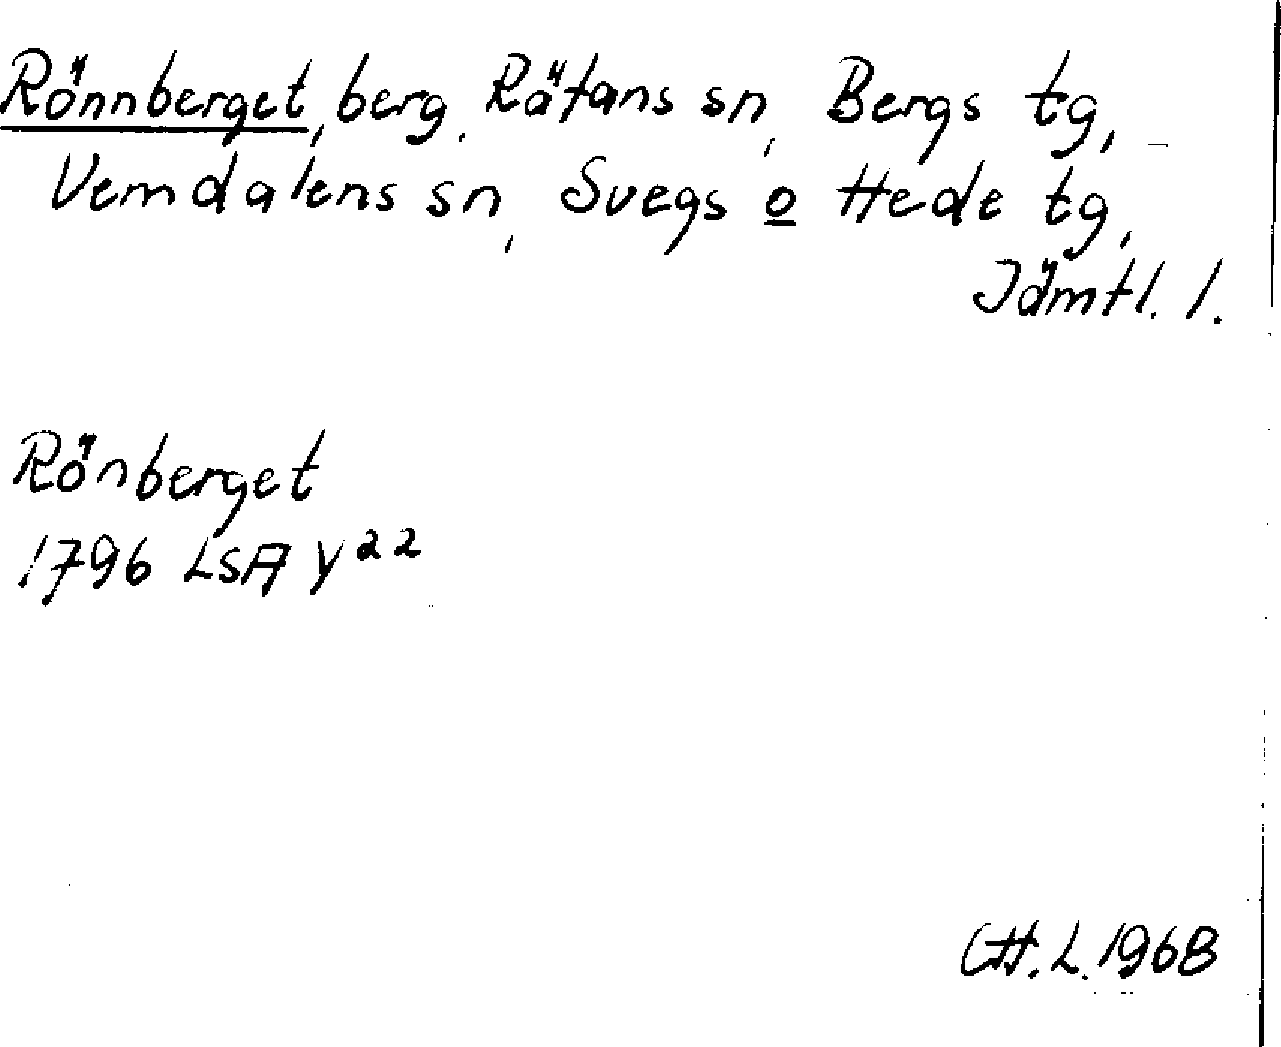 Rönnberget, berg, Rätans sn, Bergs tg,
Vemdalens sn, Svegs o Hede tg,
Jämtl. l.
Rönberget
1796 LSA Y22
CH.L. 1968